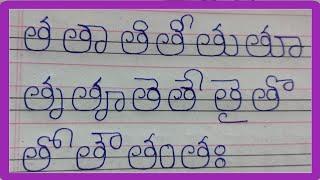 త తా తి తీ తు తూ
తృ తౄ తె తే తై తొ
తో తౌ తం తః